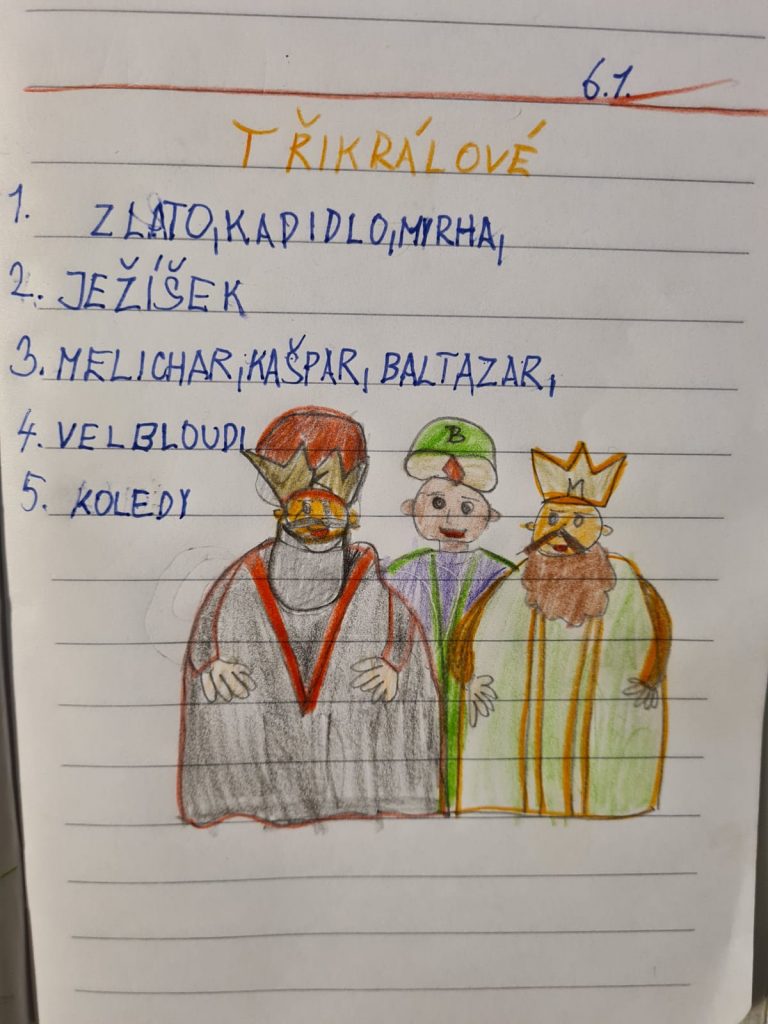 6.1.
TŘIKRÁLOVÉ
1. ZLATO, KADIDLO, MYRHA,
2. JEŽÍŠEK
3. MELICHAR, KAŠPAR, BALTAZAR,
4. VELBLOUDI
5. KOLEDY
K
B
M